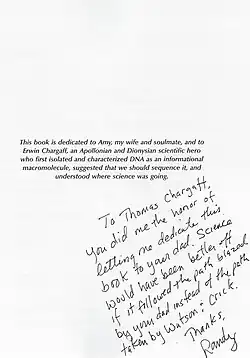 This book is dedicated to Amy, my wife and soulmate, and to
Erwin Chargaff, an Apollonian and Dionysian scientific hero
who first isolated and characterized DNA as an informational
macromolecule, suggested that we should sequence it, and
understood where science was going.
To Thomas Chargaff,
You did me the honor of
letting me dedicate this
book to your dad. Science
would have been better off
if it followed the path blazed
by your dad instead of the path
taken by Watson & Crick.
Thanks,
Randy